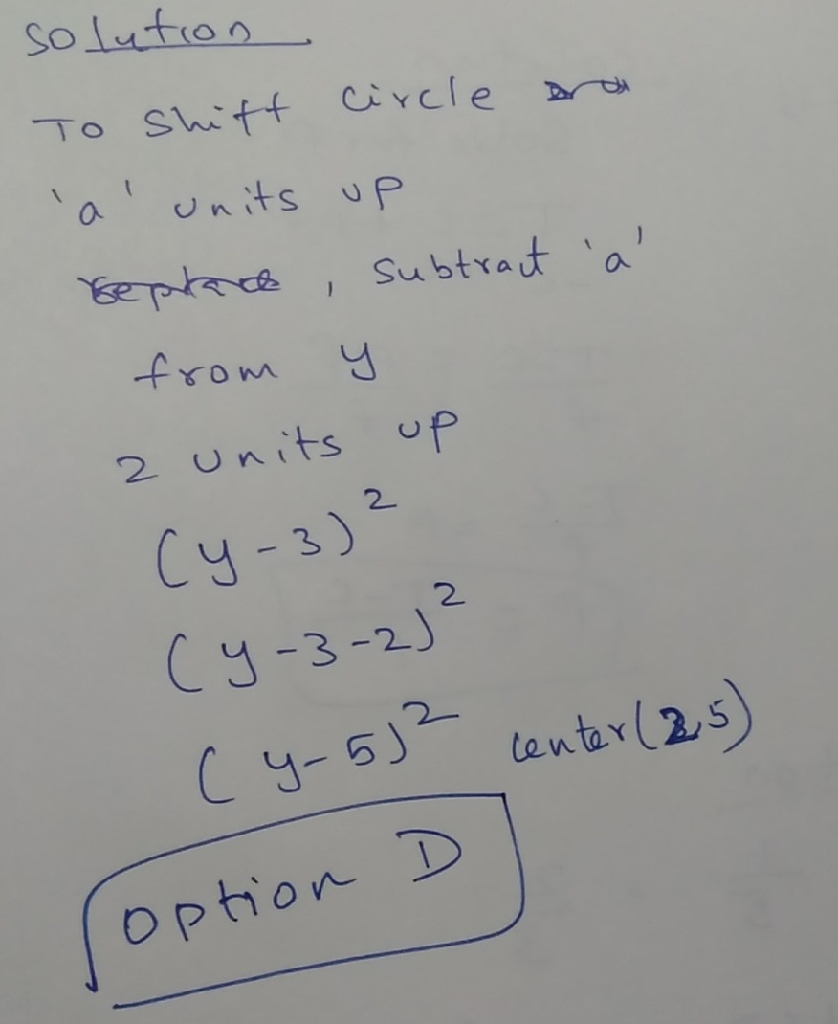 Solution
To shift circle
'a' units up
, subtract 'a'
from y
2 units up
(y-3)²
(y-3-2)²
(y-5)² center(2,5)
Option D